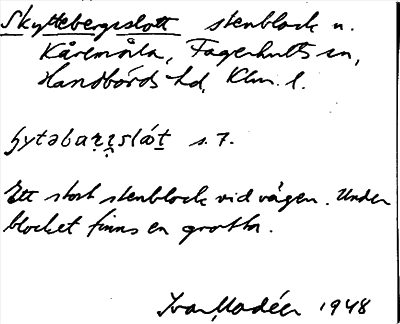 Skyttebergsslott stenblock n.
Kåremåla, Fagerhults sn,
Handbörds hd, Klm. l.
s. 7.
Ett stort stenblock vid vägen. Under
blocket finns en grotta.
Ivar Modéer 1948